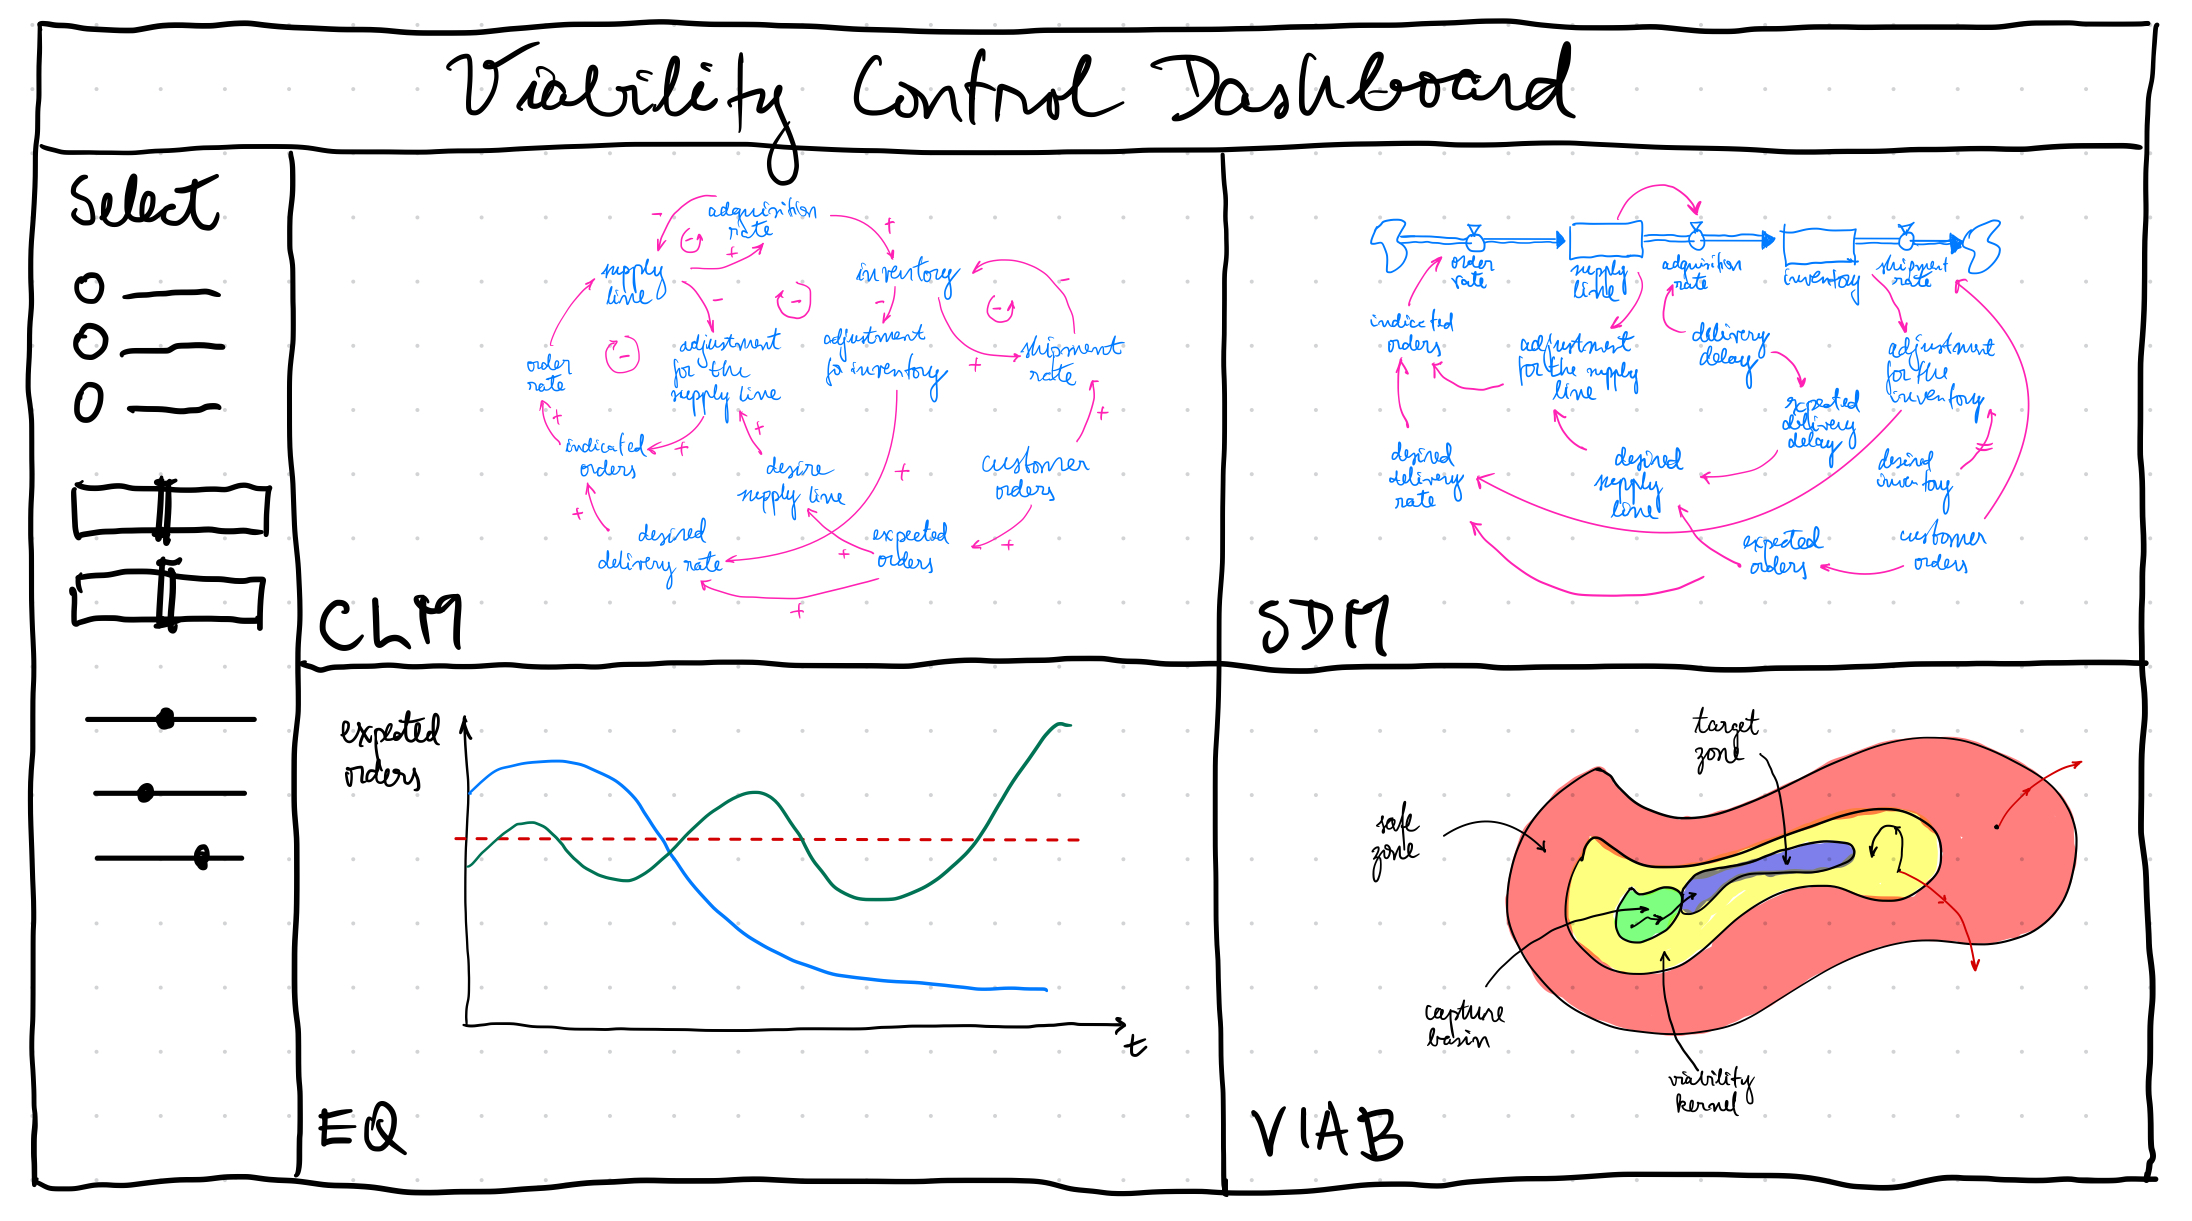 Viability Control Dashboard
Select
adquisition
rate
supply
line
inventory
order
rate
adjustment
for the
supply line
adjustment
for inventory
shipment
rate
indicated
orders
desire
supply line
customer
orders
desired
delivery rate
expected
orders
CLM
order
rate
supply
line
adquisition
rate
inventory
shipment
rate
indicated
orders
adjustment
for the supply
line
delivery
delay
adjustment
for the
inventory
expected
delivery
delay
desired
delivery
rate
desired
supply
line
desired
inventory
expected
orders
customer
orders
SDM
expected
orders
t
EQ
target
zone
safe
zone
capture
basin
viability
kernel
VIAB